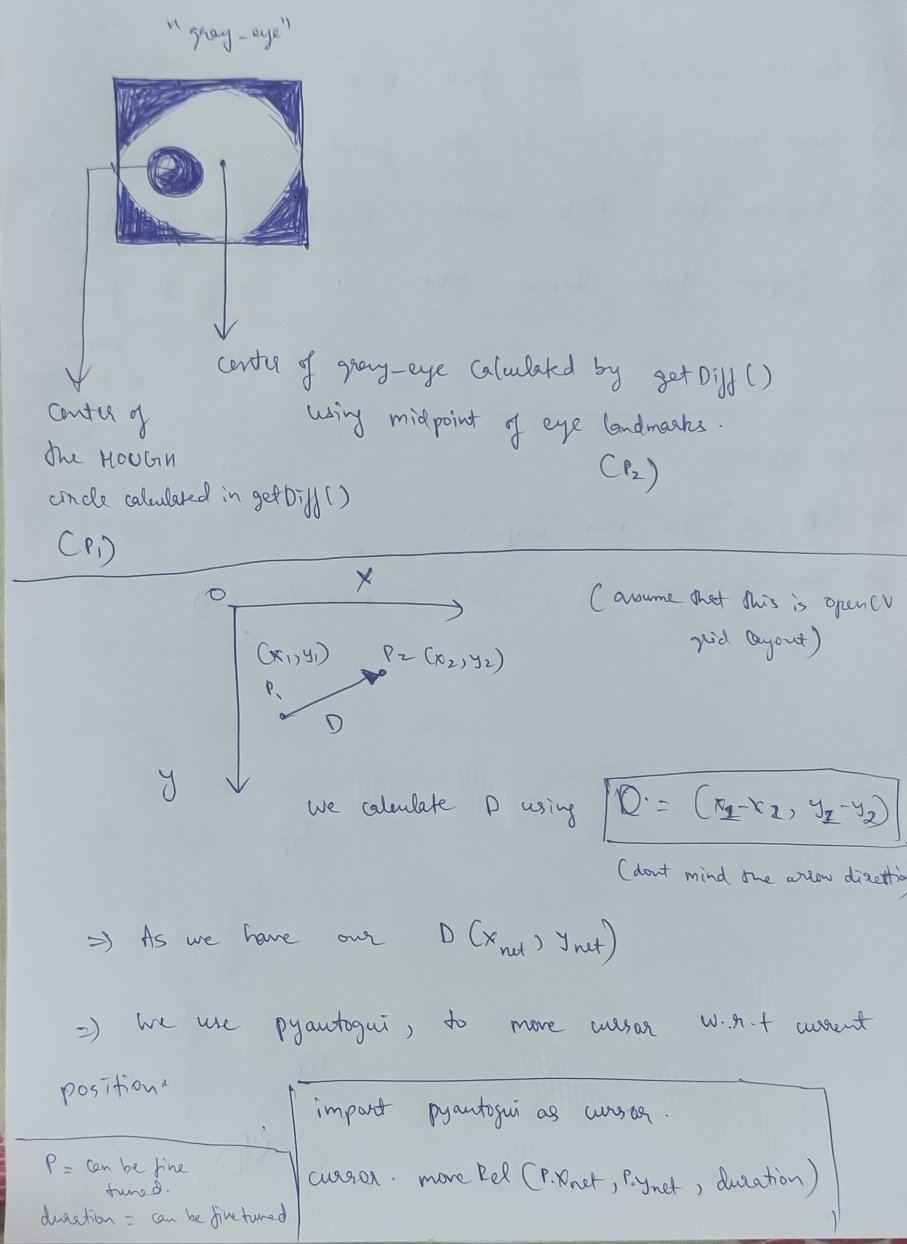 "gray-eye"
center of gray-eye calculated by getDiff()
using midpoint of eye landmarks.
(P₂)
center of
the HOUGH
circle calculated in getDiff()
(P₁)
O
X
(assume that this is openCV
grid layout)
(x₁, y₁)
P₂ (x₂, y₂)
P₁
D
y
we calculate D using
D = (x₁-x₂, y₁-y₂)
(dont mind the arrow
⇒ As we have our D (xnet, ynet)
⇒ we use pyautogui, to move cursor w.r.t current
position.
import pyautogui as cursor.
cursor. moveRel (P.xnet, P.ynet, duration)
P = can be fine
tuned.
duration = can be finetuned